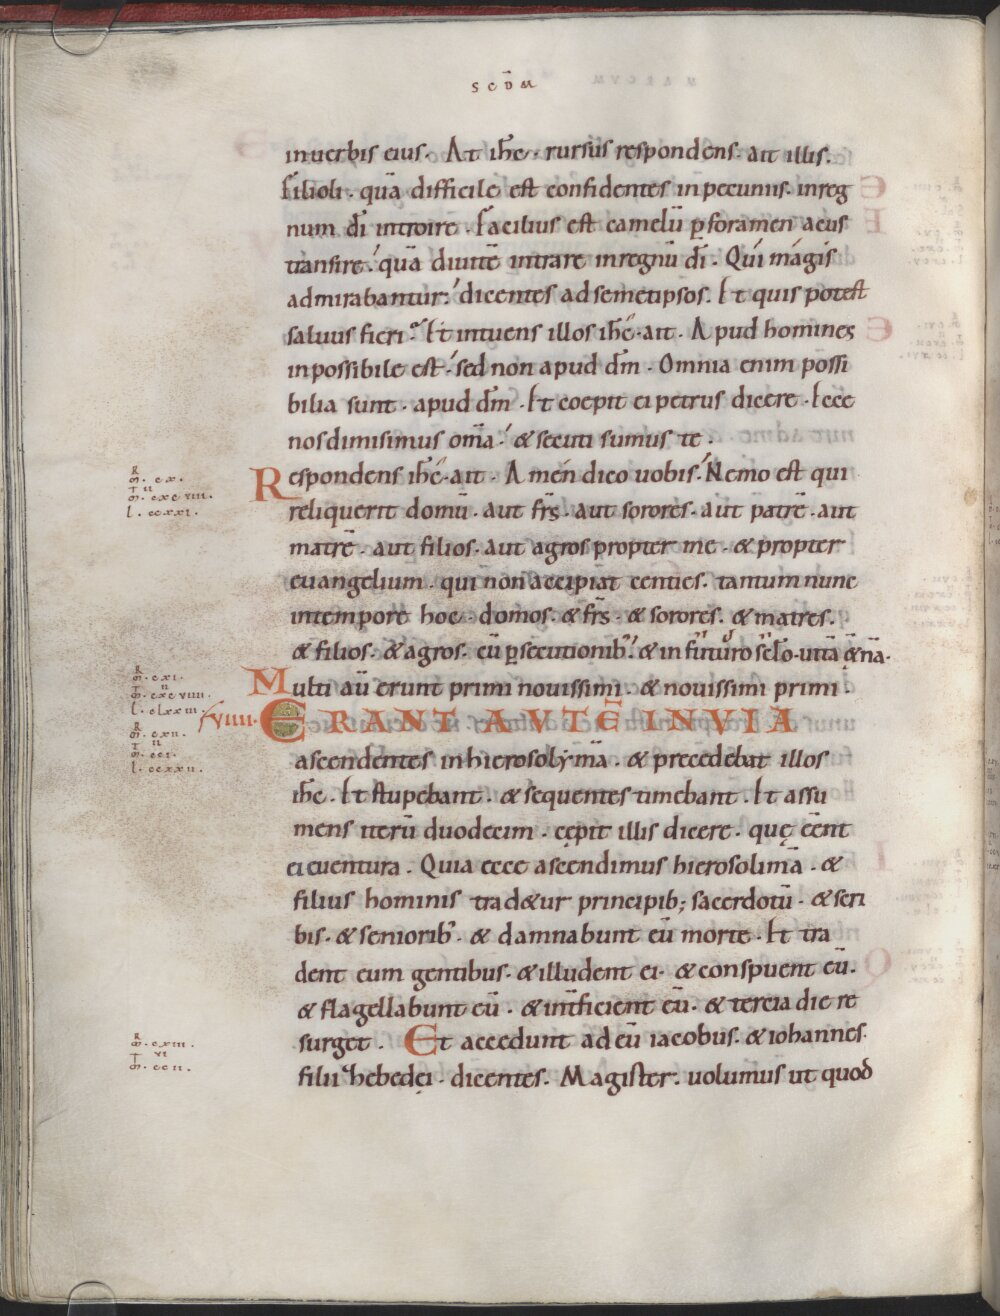 SCD̄M
in uerbis eius. At ih̄c. rursus respondens. ait illis.
Filioli. quā difficile est confidentes in pecuniis. in reg
num dī introire. Facilius est camelū ꝑ foramen acus
transire. quā diuitē intrare in regnū dī. Qui magis
admirabantur. dicentes ad semetipsos. Et quis potest
saluus fieri? Et intuens illos ih̄c. ait. Apud homines
inpossibile est. sed non apud dm̄. Omnia enim possi
bilia sunt. apud dm̄. Et coepit ei petrus dicere. Ecce
nos dimisimus om̄a. & secuti sumus te.
m̄. cx.
Respondens ih̄c. ait. Amen dico uobis. Nemo est qui
m̄. cxcviiii.
l. ccxxi.
reliquerit domū. aut frs̄. aut sorores. aut patrē. aut
matrē. aut filios. aut agros propter me. & propter
euangelium. qui non accipiat centies. tantum nunc
in tempore hoc. domos. & frs̄. & sorores. & matres.
& filios. & agros. cū ꝑsecutionib. & in futuro sc̄lo. uitā ę̄nā.
m̄. cxi.
Multi aū erunt primi nouissimi. & nouissimi primi.
m̄. cxcviiii.
l. clxxiii.
xviiii. ERANT AVTĒ IN VIA
m̄. cxii.
m̄. cci.
l. ccxxii.
ascendentes in hierosolymā. & precedebat illos
ih̄c. Et stupebant. & sequentes timebant. Et assu
mens iterū duodecim. cępit illis dicere. quę eēnt
ei euentura. Quia ecce ascendimus hierosolimā. &
filius hominis trad&ur principib; sacerdotū. & scri
bis. & seniorib. & damnabunt eū morte. Et tra
dent eum gentibus. & illudent ei. & conspuent eū.
& flagellabunt eū. & int̄ficient eū. & tercia die re
m̄. cxiii.
surget. Et accedunt ad eū iacobus. & iohannes.
vi
m̄. ccii.
filii zhebedęi. dicentes. Magister. uolumus ut quod